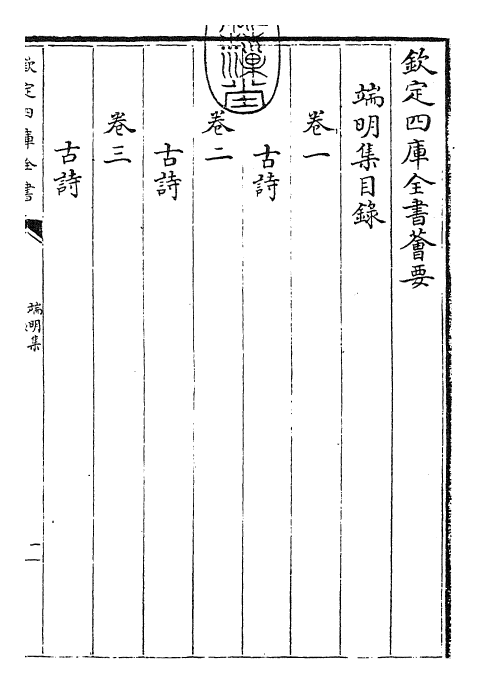 欽定四庫全書薈要
端明集目錄
卷一
古詩
卷二
古詩
卷三
古詩
欽定四庫全書
端明集